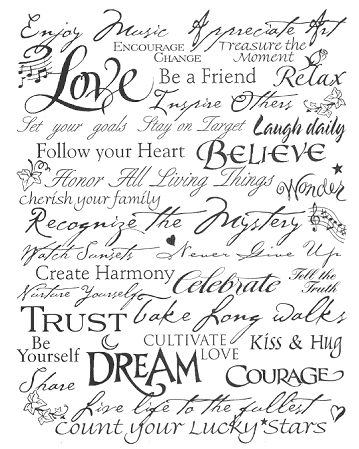 Enjoy Music Appreciate Art
ENCOURAGE CHANGE Treasure the Moment
Love Be a Friend Relax
Inspire Others
Set your goals Stay on Target Laugh daily
Follow your Heart BELIEVE
Honor All Living Things Wonder
cherish your family
Recognize the Mystery
Watch Sunsets Never Give Up
Create Harmony Celebrate Tell the Truth
Nurture Yourself
TRUST Take Long walks
Be Yourself DREAM CULTIVATE LOVE Kiss & Hug
Share COURAGE
Live life to the fullest
count your Lucky Stars